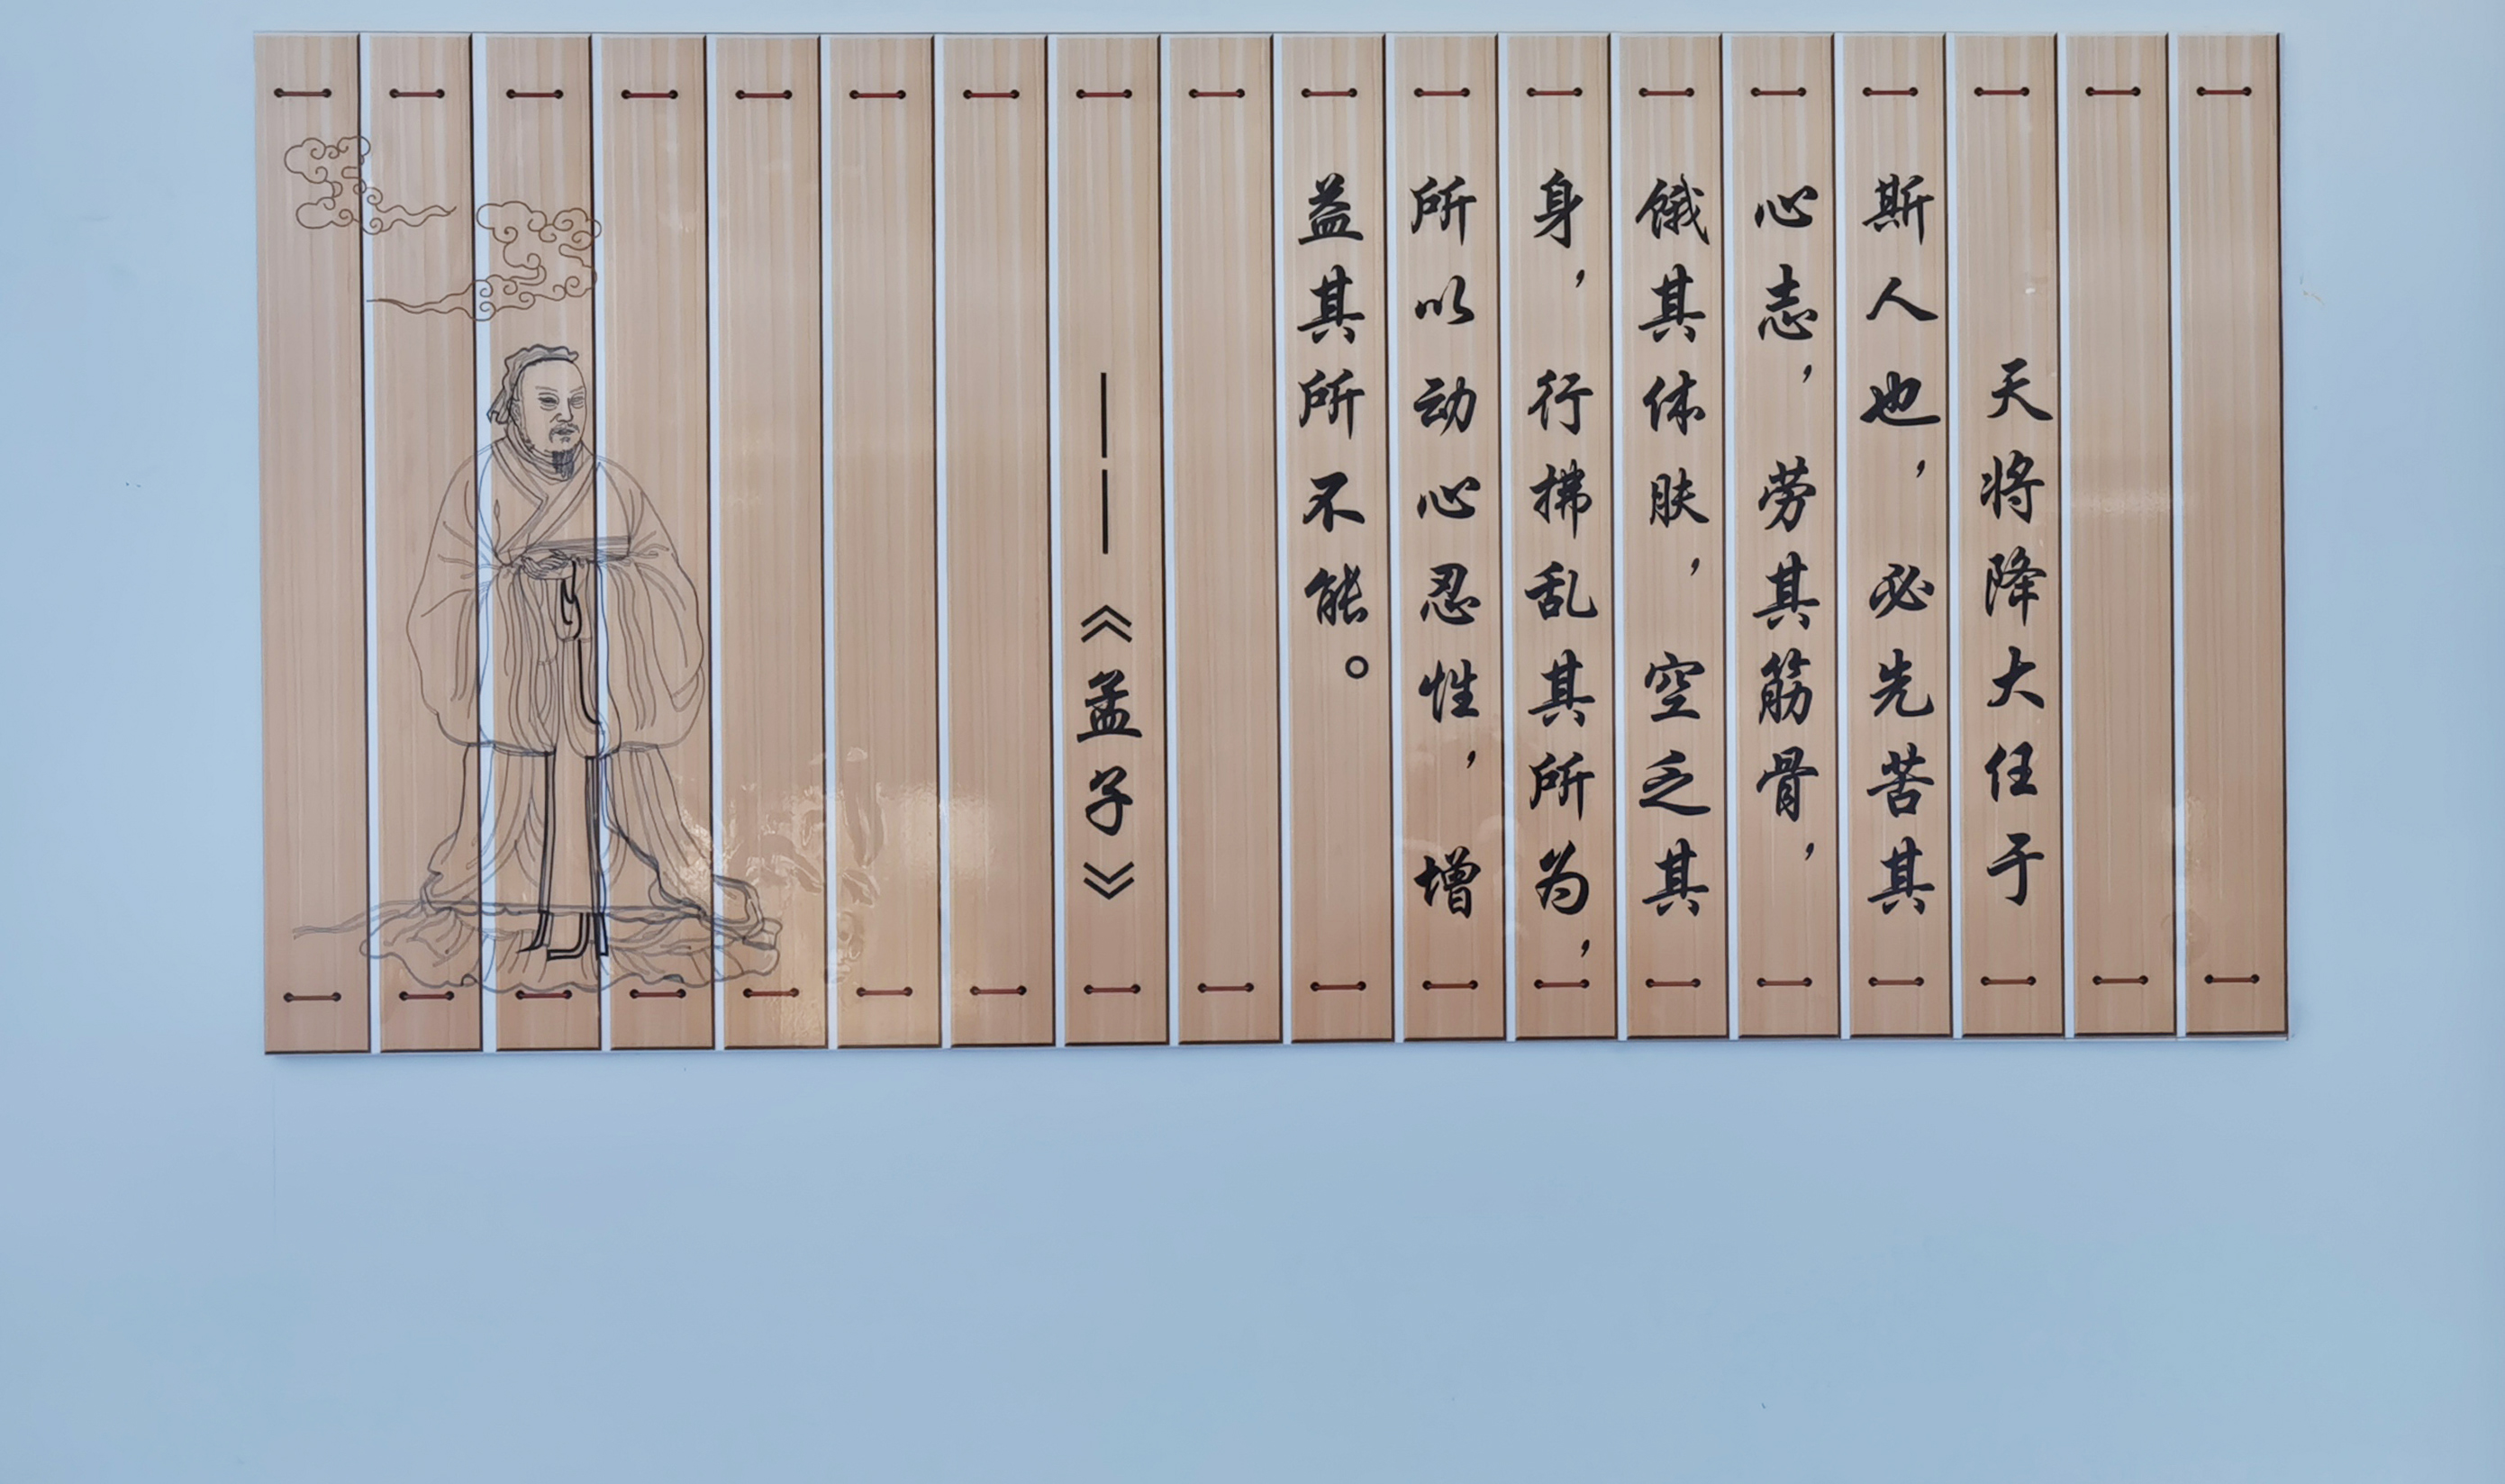 天将降大任于
斯人也，必先苦其
心志，劳其筋骨，
饿其体肤，空乏其
身，行拂乱其所为，
所以动心忍性，增
益其所不能。
——《孟子》